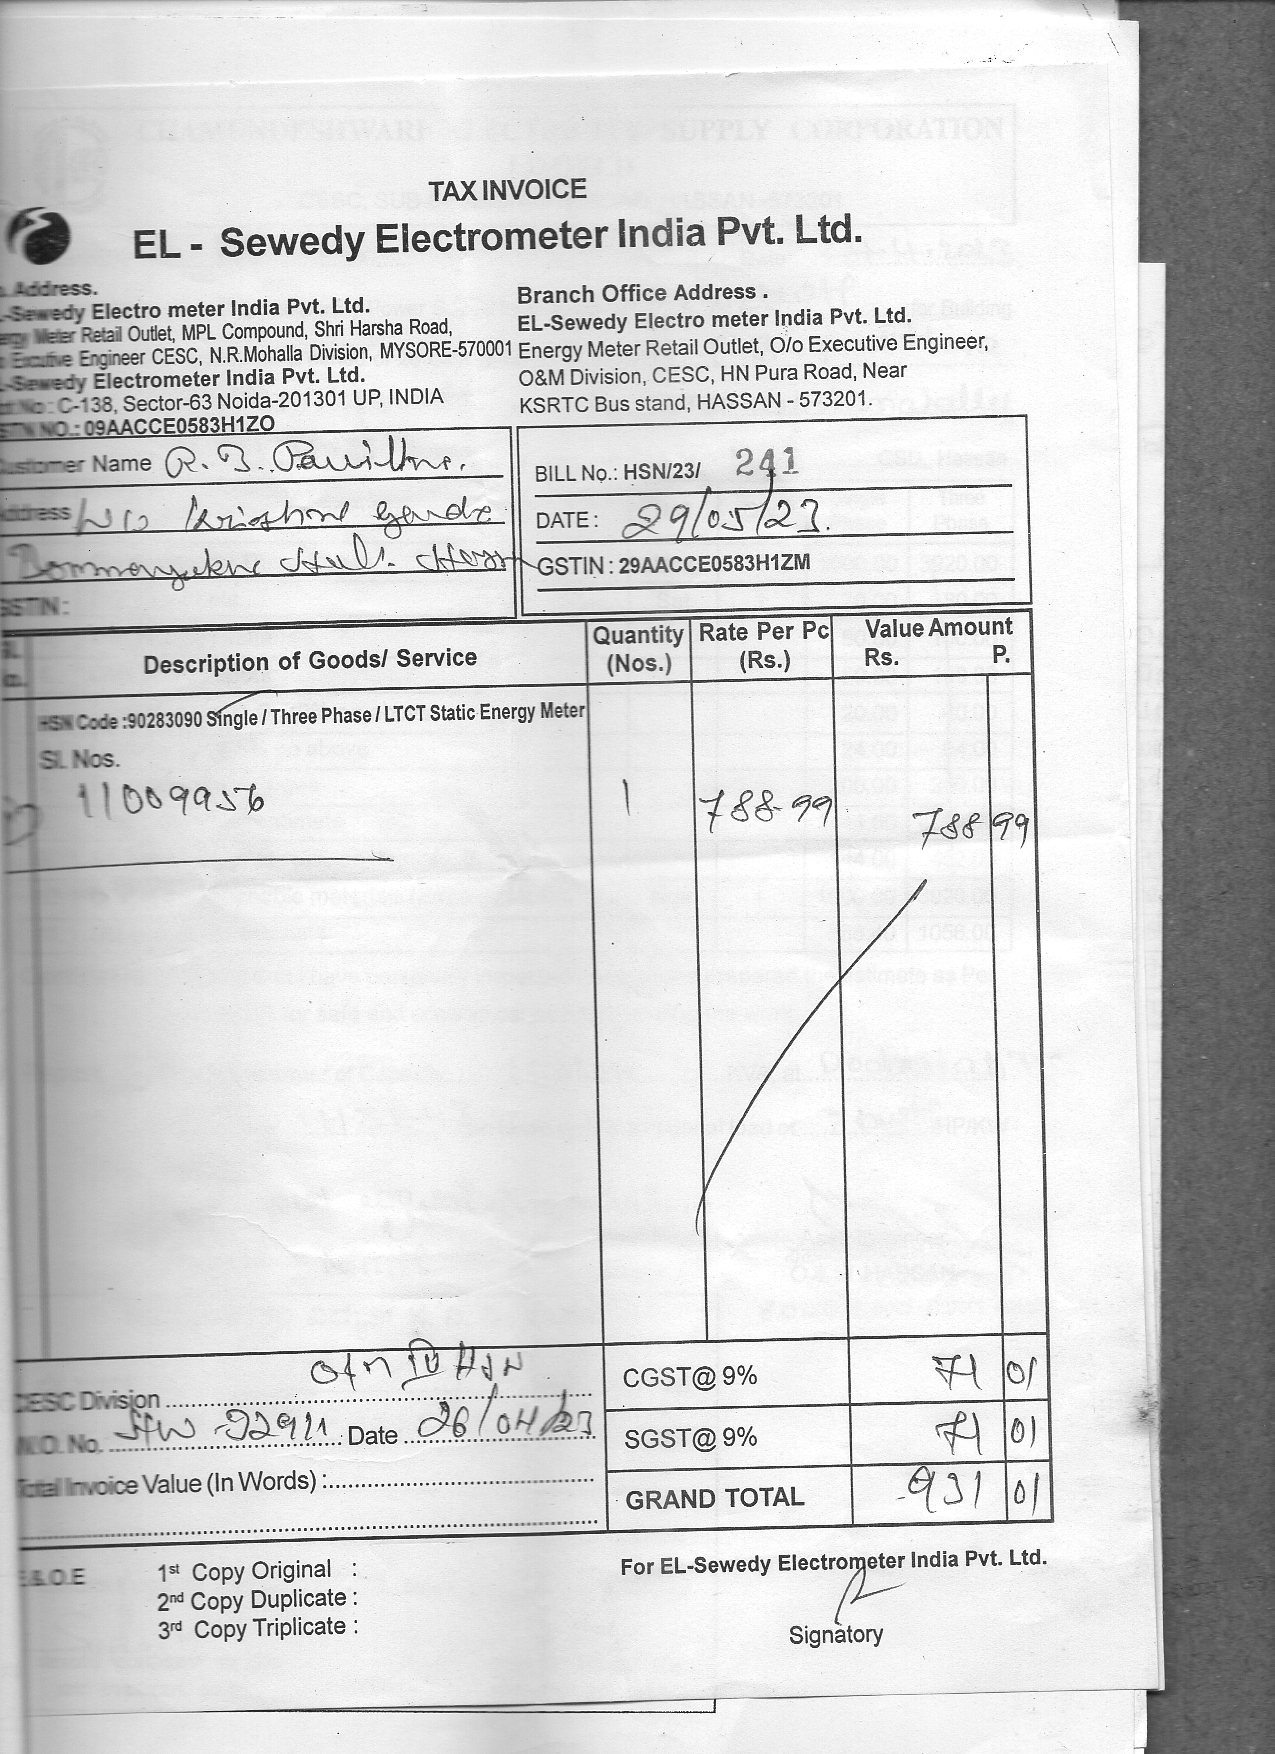 TAX INVOICE
EL - Sewedy Electrometer India Pvt. Ltd.
Address.
EL-Sewedy Electro meter India Pvt. Ltd.
Energy Meter Retail Outlet, MPL Compound, Shri Harsha Road,
Executive Engineer CESC, N.R.Mohalla Division, MYSORE-570001
EL-Sewedy Electrometer India Pvt. Ltd.
C-138, Sector-63 Noida-201301 UP, INDIA
GSTN NO.: 09AACCE0583H1ZO
Branch Office Address .
EL-Sewedy Electro meter India Pvt. Ltd.
Energy Meter Retail Outlet, O/o Executive Engineer,
O&M Division, CESC, HN Pura Road, Near
KSRTC Bus stand, HASSAN - 573201.
Customer Name R. B.
Address
GSTIN :
BILL No.: HSN/23/ 241
DATE : 29/05/23.
GSTIN : 29AACCE0583H1ZM
Description of Goods/ Service Quantity (Nos.) Rate Per Pc (Rs.) Value Amount Rs. P.
HSN Code :90283090 Single / Three Phase / LTCT Static Energy Meter
Sl. Nos.
11009956 1 788-99 788 99
CESC Division O&M HSN
W.O. No. Date 26/04/23
Total Invoice Value (In Words) :
CGST@ 9% 71 01
SGST@ 9% 71 01
GRAND TOTAL 931 01
E & O.E
1st Copy Original :
2nd Copy Duplicate :
3rd Copy Triplicate :
For EL-Sewedy Electrometer India Pvt. Ltd.
Signatory